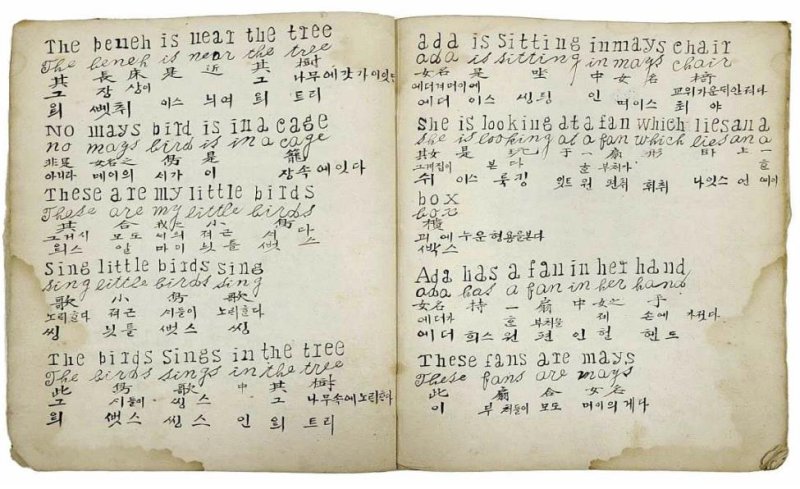 The beneh is near the tree
The beneh is near the tree
其 長床 是 近 其 樹
그 장상이 나무에 갓가이 잇다
듸 이스 늬여 듸 트리
NO mays bird is in a cage
no mays bird is in a cage
非是 女名之 鳥 是 籠
아니라 메이의 시가 이 장속에 잇다
These are my little birds
These are my little birds
其 合 我之 小 鳥
모도 져근 시 다
듸스 알 마이 늿틀 스
Sing little birds sing
sing little birds sing
歌 小 鳥 歌
노리한다 져근 시들이 노리한다
씽 늿틀 스 씽
The birds Sings in the tree
The birds sings in the tree
此 鳥 歌 中 其 樹
그 시들이 씽스 그 나무속에 노리한다
듸 스 씽스 인 듸 트리
ada is Sitting in mays chair
ada is sitting in mays chair
女名 是 坐 中 女名 椅
에더 이스 씽 인 메이스 야
She is looking at a fan which lies an a
She is looking at a fan which lies an a
其女 是 于 一 扇 上 一
그게집이 본다 부처가
쉬 이스 룩킹 원 나잇스 언 에이
box
box
櫃
궤에 누운 형용을 본다
Ada has a fan in her hand
ada has a fan in her hand
女名 持 一 扇 中 女之 手
에더가 부처를 제 손에 가젓다
에더 희스 원 편 인 헌 핸드
These fans are mays
These fans are mays
此 扇 合 女名
이 부처들이 모도 머이의게다